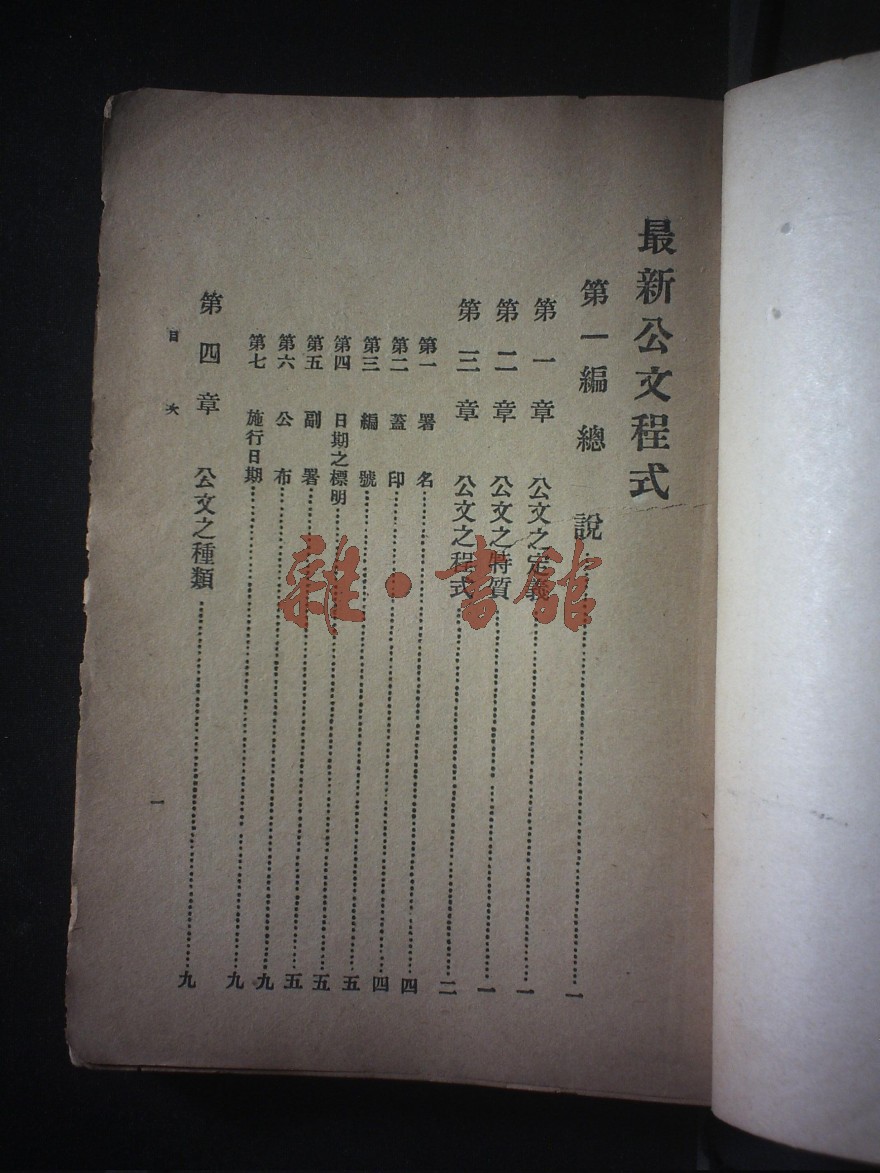 最新公文程式
第一編 總說……一
第一章 公文之定義……一
第二章 公文之特質……一
第三章 公文之程式……二
第一 署名……四
第二 蓋印……四
第三 編號……五
第四 日期之標明……五
第五 副署……五
第六 公布……九
第七 施行日期……九
第四章 公文之種類……九
目次
一
雜·書館